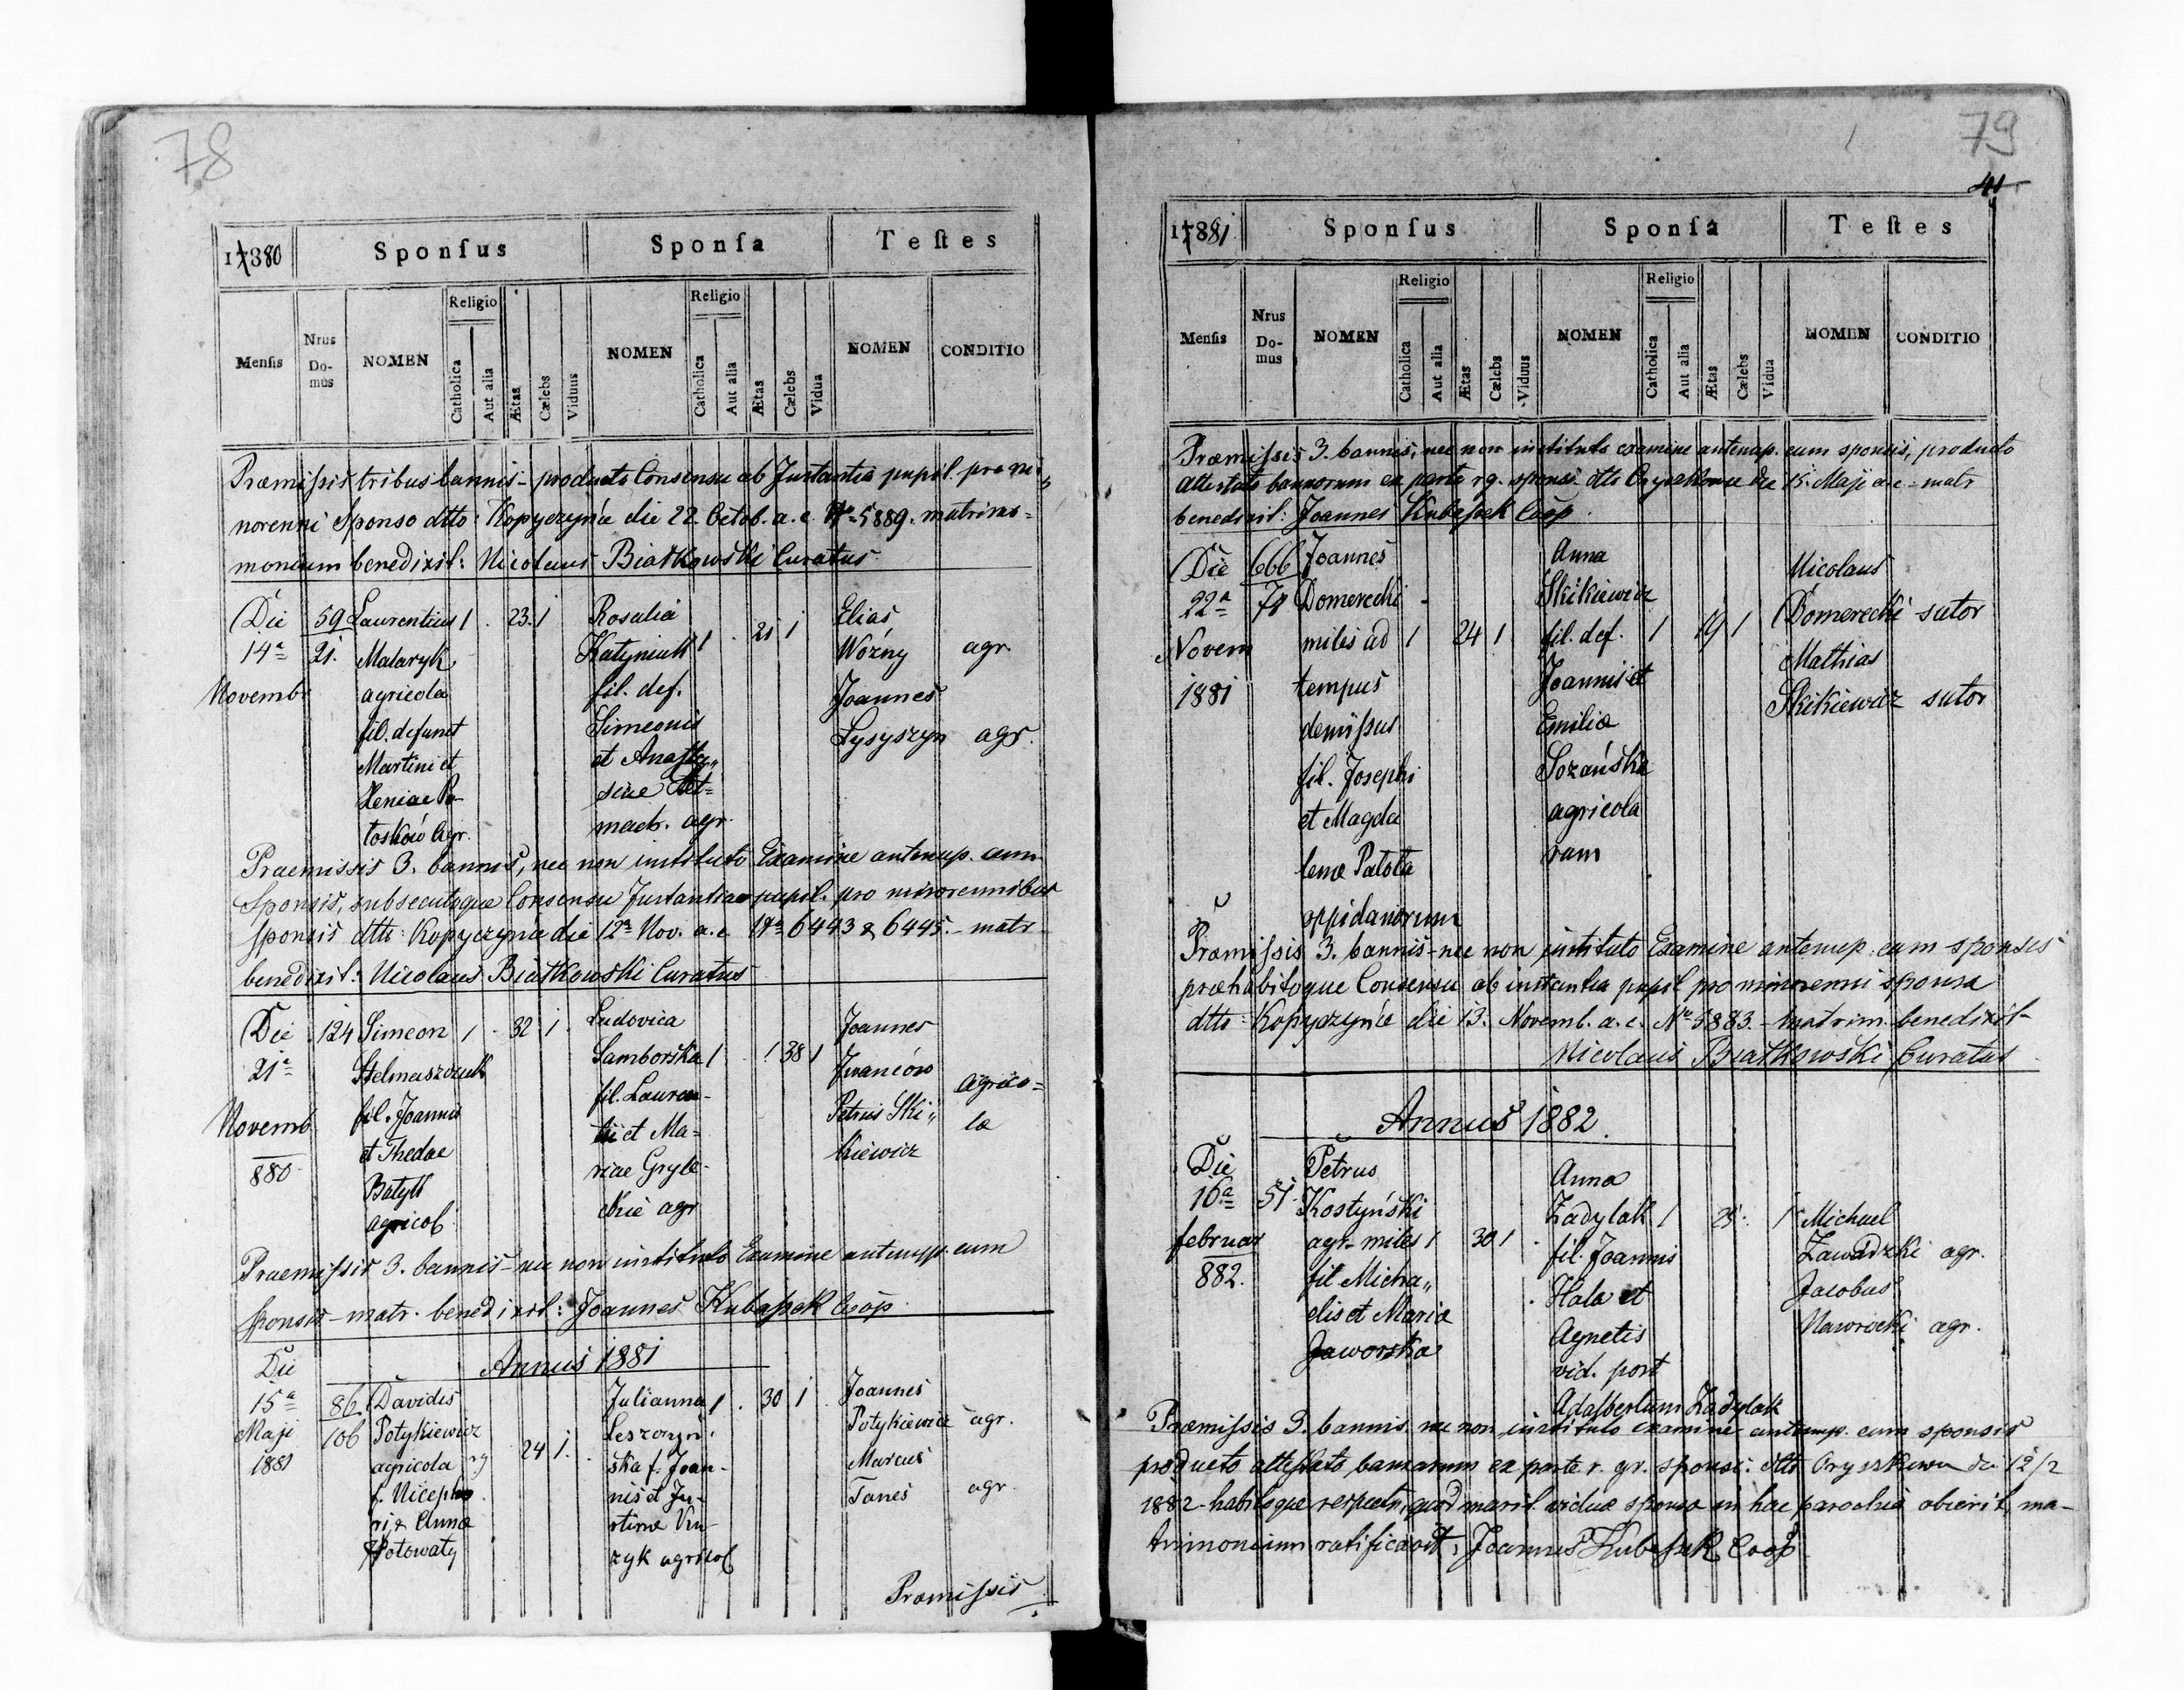 78
17380
Sponſus
Sponſa
Teſtes
Menſis
Nrus Domus
NOMEN
Religio
Catholica
Aut alia
Ætas
Cælebs
Viduus
NOMEN
Religio
Catholica
Aut alia
Ætas
Cælebs
Vidua
NOMEN
CONDITIO
Præmissis tribus bannis - producto Consensu ab Instantia pupil. pro mi„
norenni Sponso dtto: Kopyczyńce die 22. Octob. a. c. Nro 5889. matrimo=
monium benedixit: Nicolaus Białkowski Curatus
Die 59 Laurentius 1 . 23. 1 Rosalia 21 1 Elias
14a 21. Malaryk Katyniuk 1 Wózny agr.
Novemb agricola fil. def. Joannes
fil. defunct Simeonis Lysyszyn agr.
Martini et et Anasta„
Xeniae Po siae
toskow agr. mach. agr.
Praemissis 3. bannis, nec non instituto Examine antenup. cum
Sponsis, subsecutoque Consensu Instantiae pupil. pro minorennibus
sponsis dtto: Kopyczyńce die 12a Nov. a. c. Nro 6443 & 6445. - matr.
benedixit: Nicolaus Białkowski Curatus
Die 124 Simeon 1 . 32 1 Ludovica Joannes
21a Stelmaszczuk Samborska 1 38 1 Iwanców
Novemb fil. Joannis fil. Lauren- Petrus Ski„ agrico=
880 et Thedae tii et Ma= kiewicz lae
Batyk riae Gryle-
agricol ckie agr
Praemissis 3. bannis - nec non instituto Examine antenup. cum
sponsis - matr. benedixit: Joannes Kubassek Coop
Annus 1881
Die
15a 86 Davidis Julianna 1 . 30 1 Joannes
Maji 106 Potykiewicz Leszczyń Potykiewicz agr.
1881 agricola rg 24 1. ska f. Joan- Marcus
f. Nicepho nis et Ju- Tanes agr.
ri & Anna stinæ
Hotowaty zyk agricol
Præmissis
79
41
17881
Sponſus
Sponſa
Teſtes
Menſis
Nrus Domus
NOMEN
Religio
Catholica
Aut alia
Ætas
Cælebs
Viduus
NOMEN
Religio
Catholica
Aut alia
Ætas
Cælebs
Vidua
NOMEN
CONDITIO
Præmissis 3. bannis, nec non instituto examine antenup. cum sponsis, producto
attestato bannorum ex parte rg. sponsi dtto Oryszkowce die 15. Maji a c - matr
benedixit: Joannes Kubassek Coop.
Die 666 Joannes Anna Nicolaus
22a 74 Domerecki Skikiewicz Domerecki sutor
Novem miles ad 1 24 1 fil. def. 1 19 1 Mathias
1881 tempus Joannis et Skikiewicz sutor
demissus Emiliæ
fil. Josephi Sozańska
et Magda agricola
lenæ Patola rum
oppidanorum
Præmissis 3. bannis - nec non instituto Examine antenup. cum sponsis
præhabitoque Consensu ab instantia pupil pro minorenni sponsa
dtto: Kopyczyńce die 13. Novemb. a. c. Nro 5883. - matrim. benedixit -
Nicolaus Białkowski Curatus
Annus 1882.
Die Petrus Anna
16a 51. Kostyński Zadylak 1 25. 1 Michael
februar agr. miles 1 30 1 fil. Joannis Zawadzki agr.
882. fil Micha„ Hala et Jacobus
elis et Mariæ Agnetis Nawrocki agr.
Jaworska vid. post
Adalbertum Zadylak
Præmissis 3. bannis. nec non instituto examine antenup. cum sponsis
producto attestato bannorum ex parte r. gr. sponsi: dtto Oryszkowce die 12/2
1882 - habitoque respectu, quod marit. viduæ sponsæ in hac parochia obierit, ma-
trimonium ratificavit: Joannes Kubassek Coop